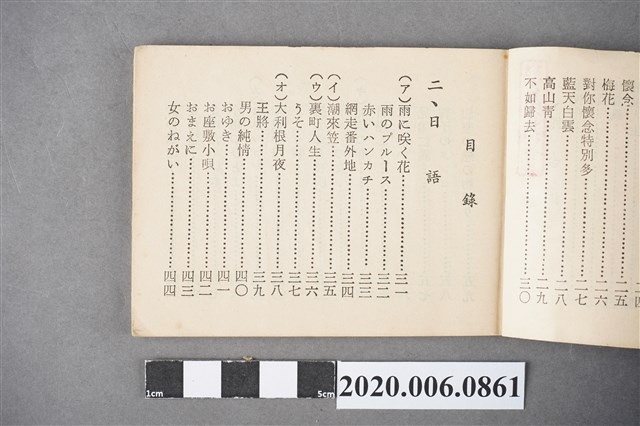 懷念
二五
梅花……二六
對你懷念特別多……二七
藍天白雲……二八
高山青……二九
不如歸去……三〇
目錄
二、日語
(ア)雨に咲く花……三一
雨のブルース……三二
赤いハンカチ……三三
網走番外地……三四
(イ)潮來笠……三五
(ウ)裏町人生……三六
うそ……三七
(オ)大利根月夜……三八
王將……三九
男の純情……四〇
おゆき……四一
お座敷小唄……四二
おまえに……四三
女のねがい……四四
1cm
5cm
2020.006.0861